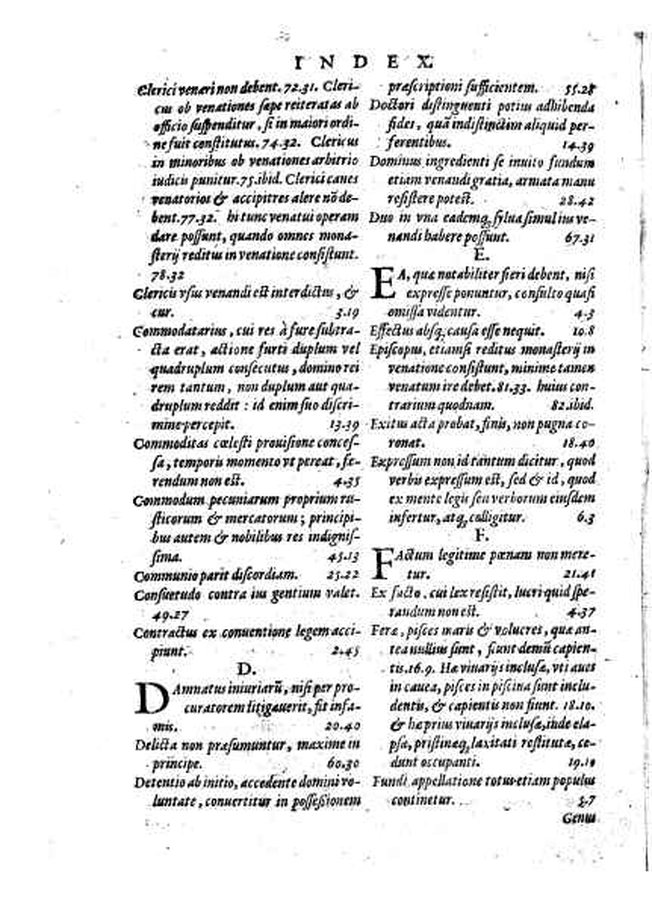 INDEX
Clerici venari non debent. 72.31. Cleri-
cus ob venationes sæpe reiteratas ab
officio suspenditur, si in maiori ordi-
ne fuit constitutus. 74.32. Clericus
in minoribus ob venationes arbitrio
iudicis punitur. 75. ibid. Clerici canes
venatorios & accipitres alere nõ de-
bent. 77.32. hi tunc venatui operam
dare possunt, quando omnes mona-
sterij reditus in venatione consistunt.
78.32
Clericis vsus venandi est interdictus, &
cur. 3.19
Commodatarius, cui res à fure subtra-
cta erat, actione furti duplum vel
quadruplum consecutus, domino rei
rem tantum, non duplum aut qua-
druplum reddit : id enim suo discri-
mine percepit. 13.39
Commoditas cœlesti prouisione conces-
sa, temporis momento vt pereat, fe-
rendum non est. 4.35
Commodum pecuniarum proprium ru-
sticorum & mercatorum ; principi-
bus autem & nobilibus res indignis-
sima. 45.13
Communio parit discordiam. 25.22
Consuetudo contra ius gentium valet.
49.27
Contractus ex conuentione legem acci-
piunt. 2.45
D.
DAmnatus iniuriarũ, nisi per pro-
curatorem litigauerit, fit infa-
mis. 20.40
Delicta non præsumuntur, maxime in
principe. 60.30
Detentio ab initio, accedente domini vo-
luntate, conuertitur in possessionem
præscriptioni sufficientem. 55.28
Doctori distinguenti potius adhibenda
fides, quã indistinctim aliquid per-
ferentibus. 14.39
Dominus ingredienti se inuito fundum
etiam venandi gratia, armata manu
resistere potest. 28.42
Duo in vna eademq; sylua simul ius ve-
nandi habere possunt. 67.31
E.
EA, quæ notabiliter fieri debent, nisi
expresse ponuntur, consulto quasi
omissa videntur. 4.3
Effectus absq; causa esse nequit. 10.8
Episcopus, etiamsi reditus monasterij in
venatione consistunt, minime tamen
venatum ire debet. 81.33. huius con-
trarium quodnam. 82. ibid.
Exitus acta probat, finis, non pugna co-
ronat. 18.40
Expressum non id tantum dicitur, quod
verbis expressum est, sed & id, quod
ex mente legis seu verborum eiusdem
infertur, atq; colligitur. 6.3
F.
FActum legitime pœnam non mere-
tur. 21.41
Ex facto, cui lex resistit, lucri quid spe-
randum non est. 4.37
Feræ, pisces maris & volucres, quæ an-
tea nullius sunt, fiunt demũ capien-
tis. 16.9. Hæ viuarijs inclusæ, vti aues
in cauea, pisces in piscina sunt inclu-
dentis, & capientis non fiunt. 18.10.
& hæ prius viuarijs inclusæ, inde ela-
psæ, pristinæq; laxitati restitutæ, ce-
dunt occupanti. 19.10
Fundi appellatione totus etiam populus
continetur. 5.7
Genus